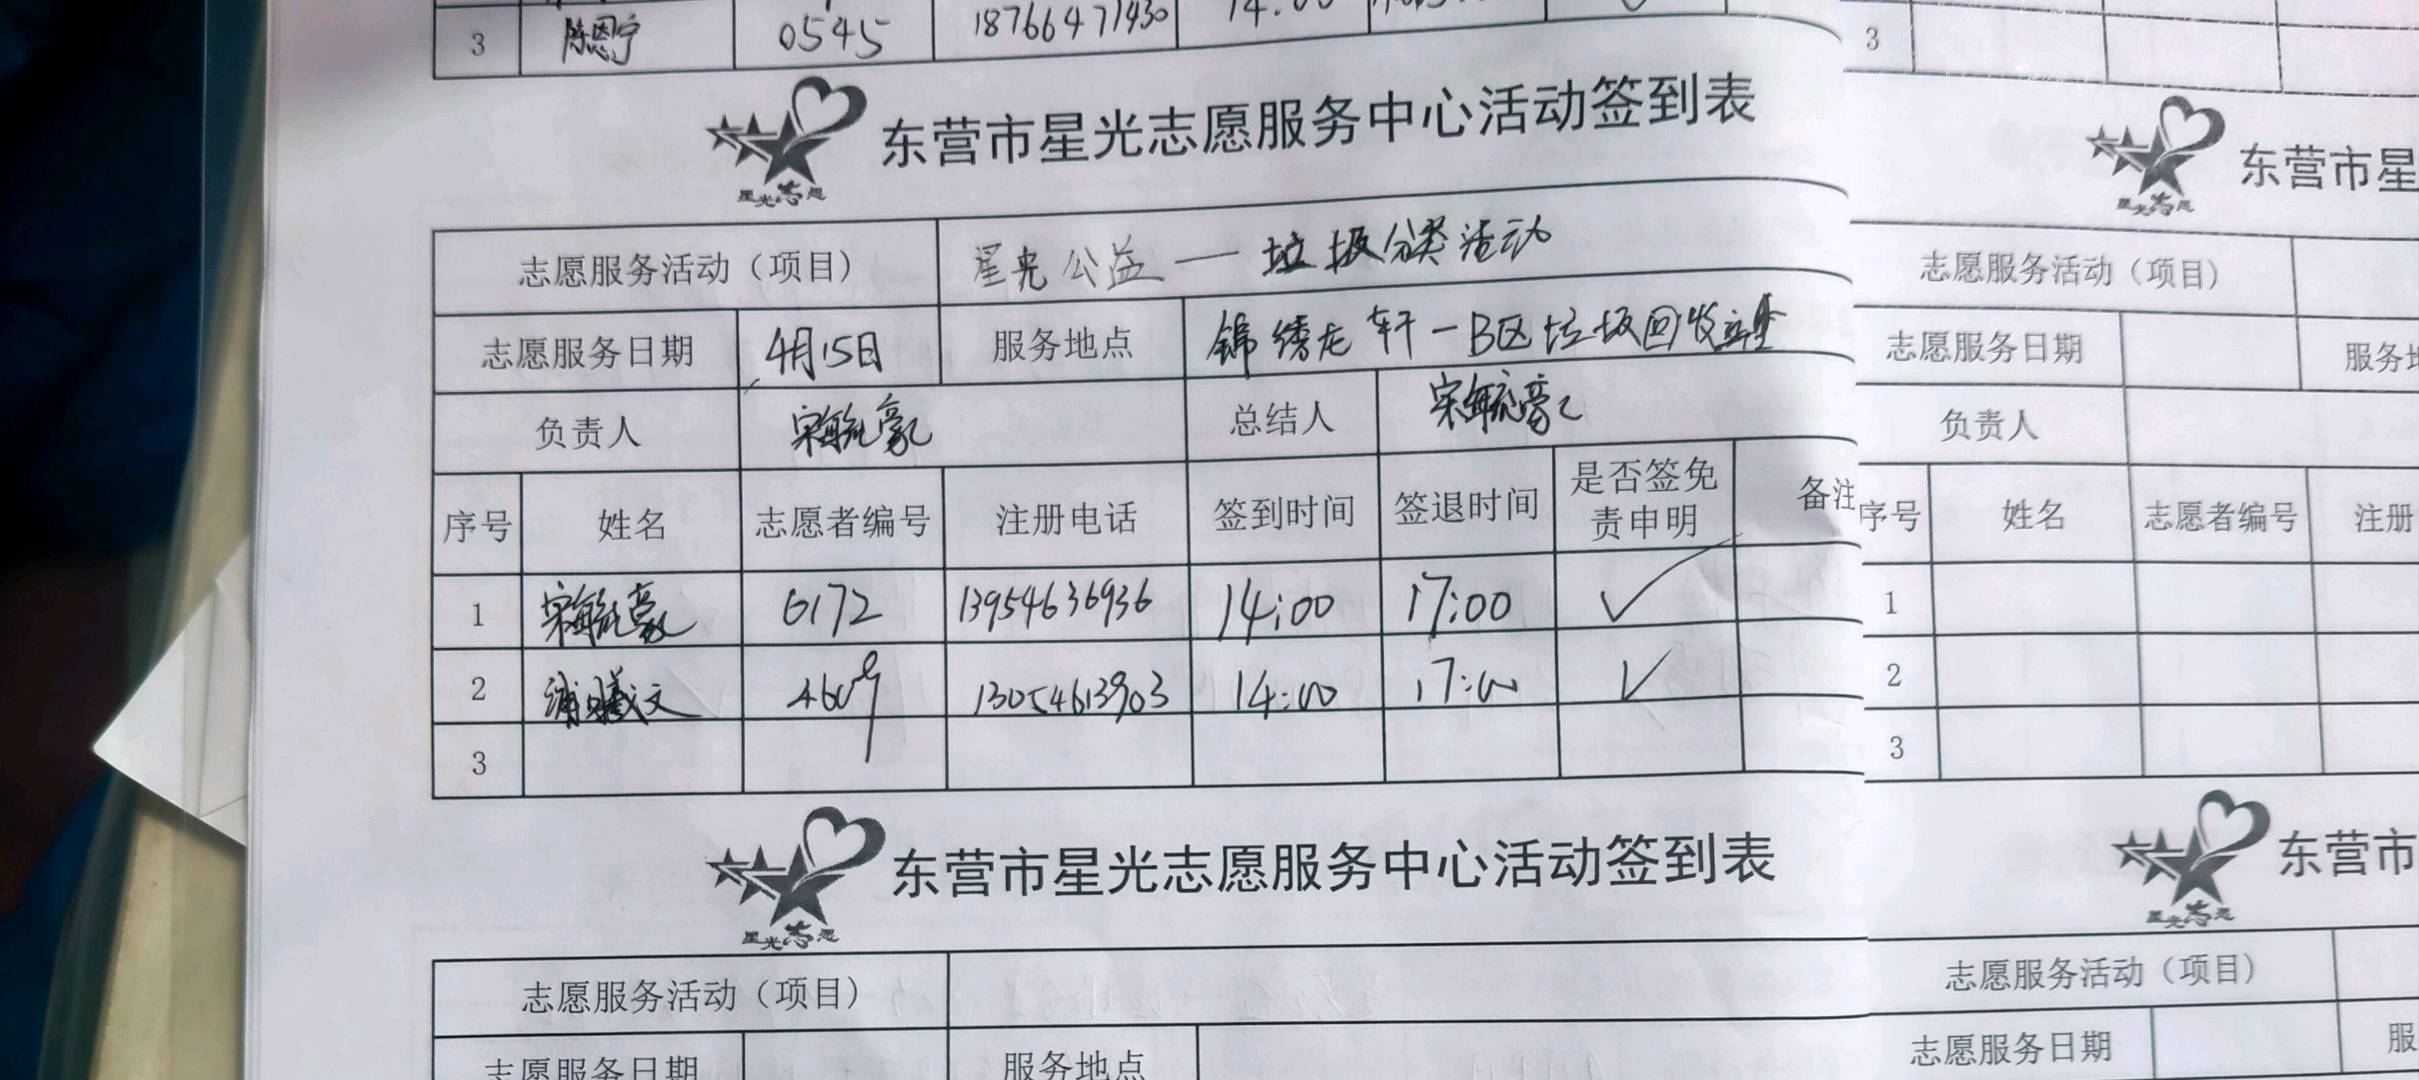 3 陈恩宁 0545 18766471430 14:00
东营市星光志愿服务中心活动签到表
星光志愿
志愿服务活动（项目） 星光公益一垃圾分类活动
志愿服务日期 4月15日 服务地点 锦绣龙轩一B区垃圾回收
负责人 宋毓豪 总结人 宋毓豪
序号 姓名 志愿者编号 注册电话 签到时间 签退时间 是否签免责申明 备注
1 宋毓豪 6172 13954636936 14:00 17:00 ✓
2 曦文 4609 13054613903 14:00 17:00 ✓
3
东营市星光志愿服务中心活动签到表
星光志愿
志愿服务活动（项目）
志愿服务日期 服务地点
3
东营市星
星光志愿
志愿服务活动（项目）
志愿服务日期 服务地
负责人
序号 姓名 志愿者编号 注册
1
2
3
东营市
星光志愿
志愿服务活动（项目）
志愿服务日期 服